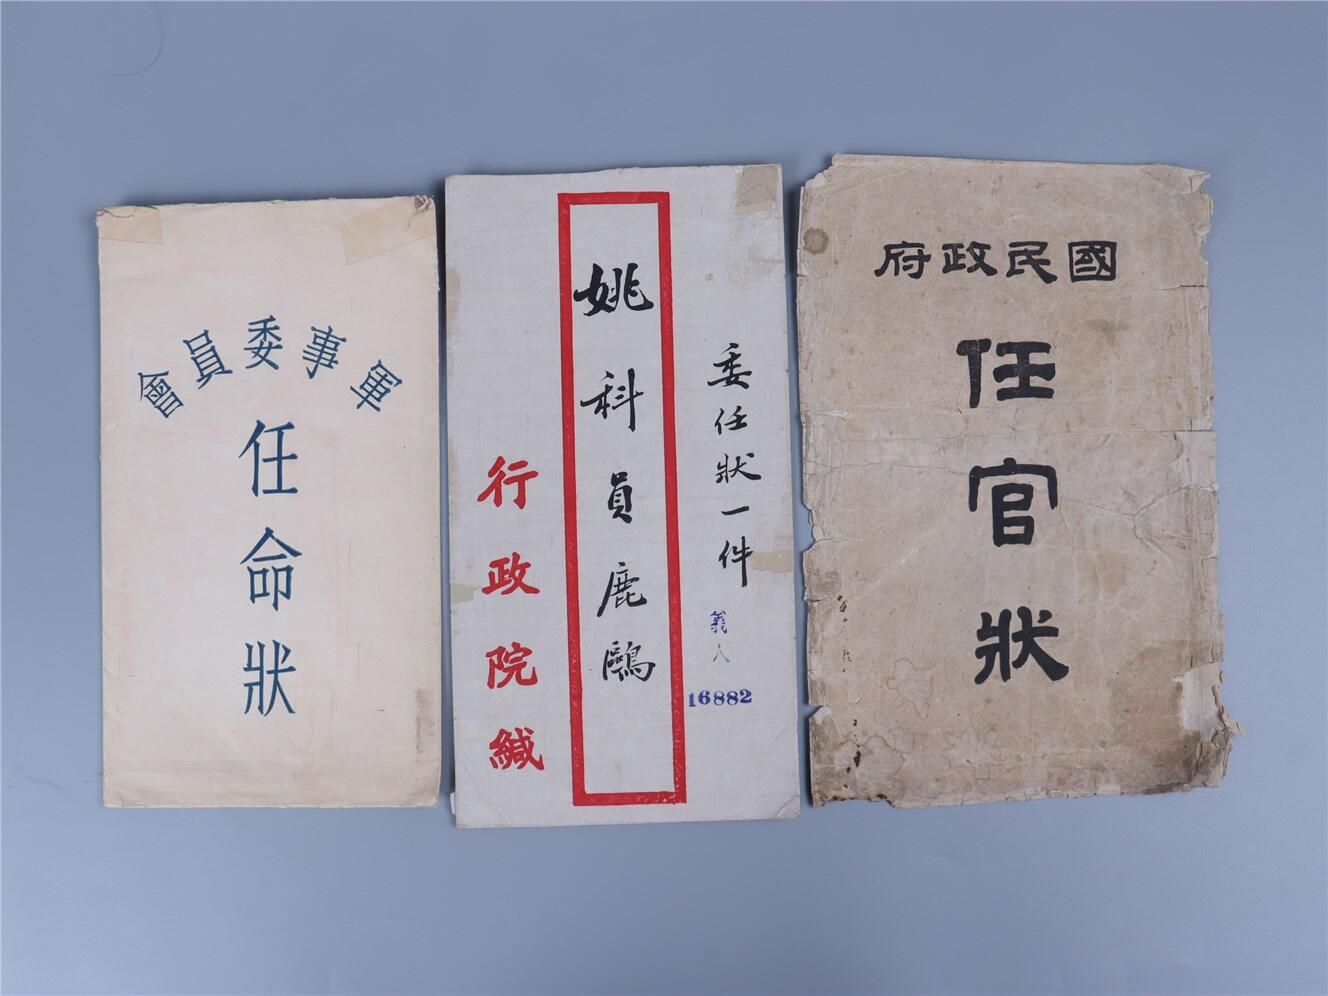 軍事委員會
任命狀
委任狀一件
義人
16882
姚科員鹿鷗
行政院緘
國民政府
任官狀